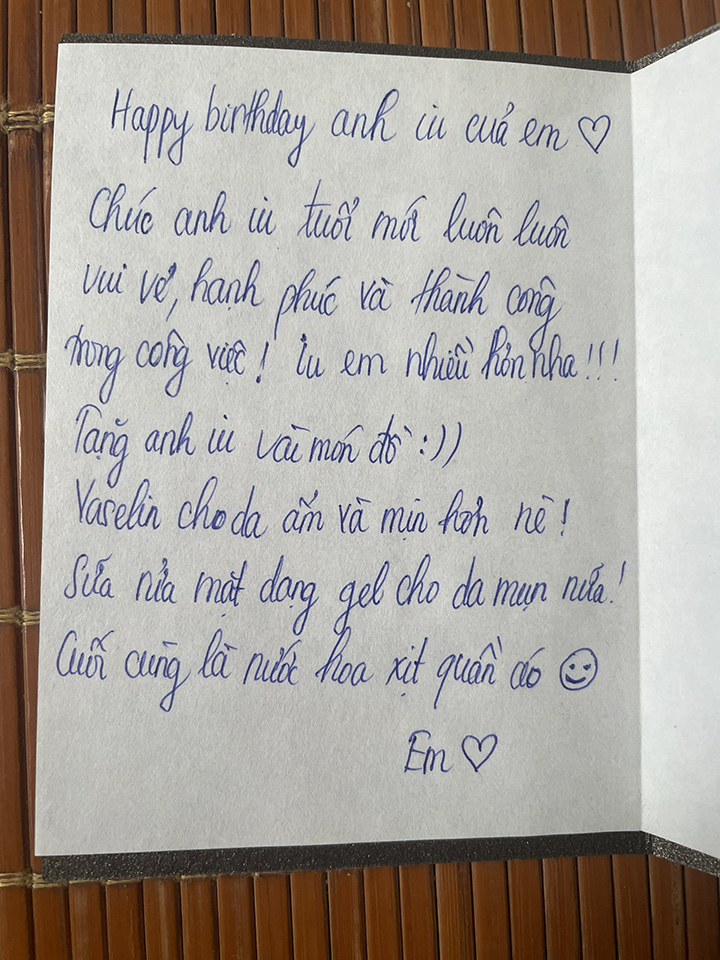 Happy birthday anh iu của em ♡
Chúc anh iu tuổi mới luôn luôn
vui vẻ, hạnh phúc và thành công
trong công việc! Iu em nhiều hơn nha!!!
Tặng anh iu vài món đồ :))
Vaselin cho da ẩm và mịn hơn nè!
Sữa rửa mặt dạng gel cho da mụn nữa!
Cuối cùng là nước hoa xịt quần áo 😉
Em ♡